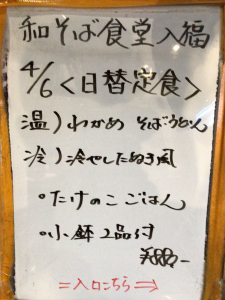 和そば食堂入福
4/6<日替定食>
温)わかめ そばうどん
冷)冷やしたぬき風
・たけのこごはん
・小鉢2品付
¥880-
=入口こちら⇒